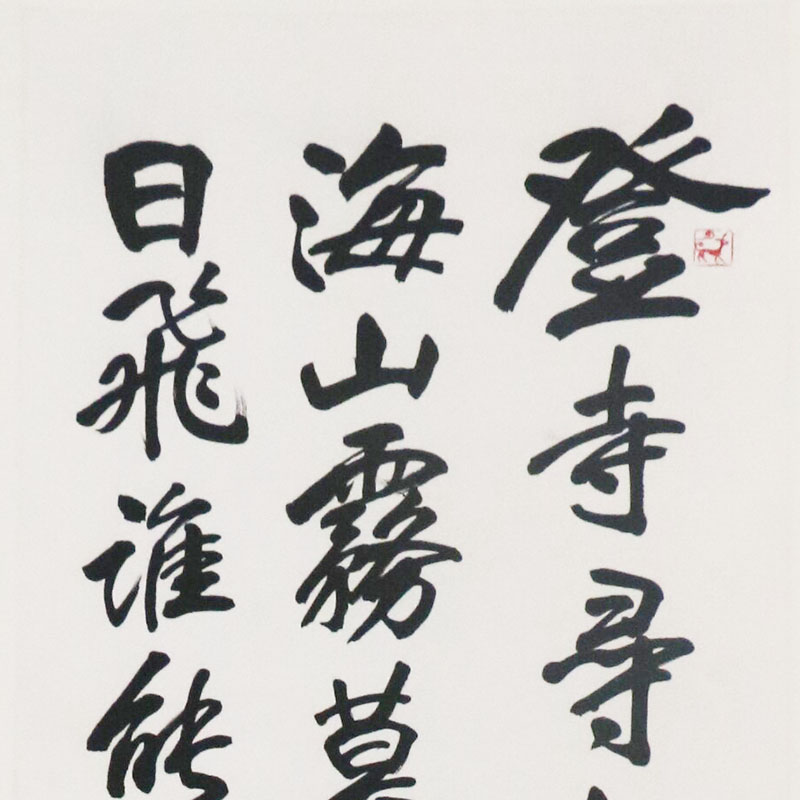 登寺尋
海山霧莫
日飛誰能